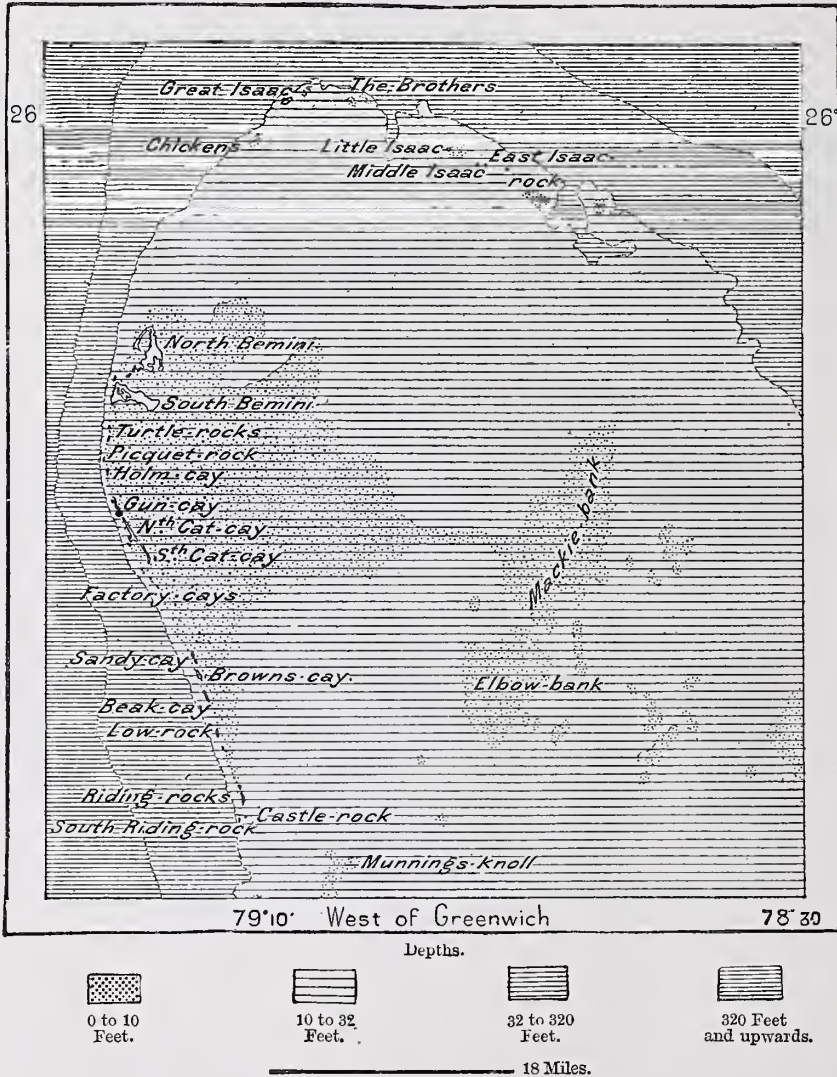 Great Isaac The Brothers
26 26°
Chickens Little Isaac East Isaac
Middle Isaac rock
North Bemini
South Bemini
Turtle-rocks
Picquet-rock
Holm-cay
Gun-cay
Nth Cat-cay
Sth Cat-cay
Mackie-bank
Factory-cays
Sandy-cay
Browns-cay.
Elbow-bank
Beak-cay
Low-rock
Riding-rocks
Castle-rock
South-Riding-rock
Munnings-knoll
79°10' West of Greenwich 78°30
Depths.
0 to 10 Feet.
10 to 32 Feet.
32 to 320 Feet.
320 Feet and upwards.
18 Miles.